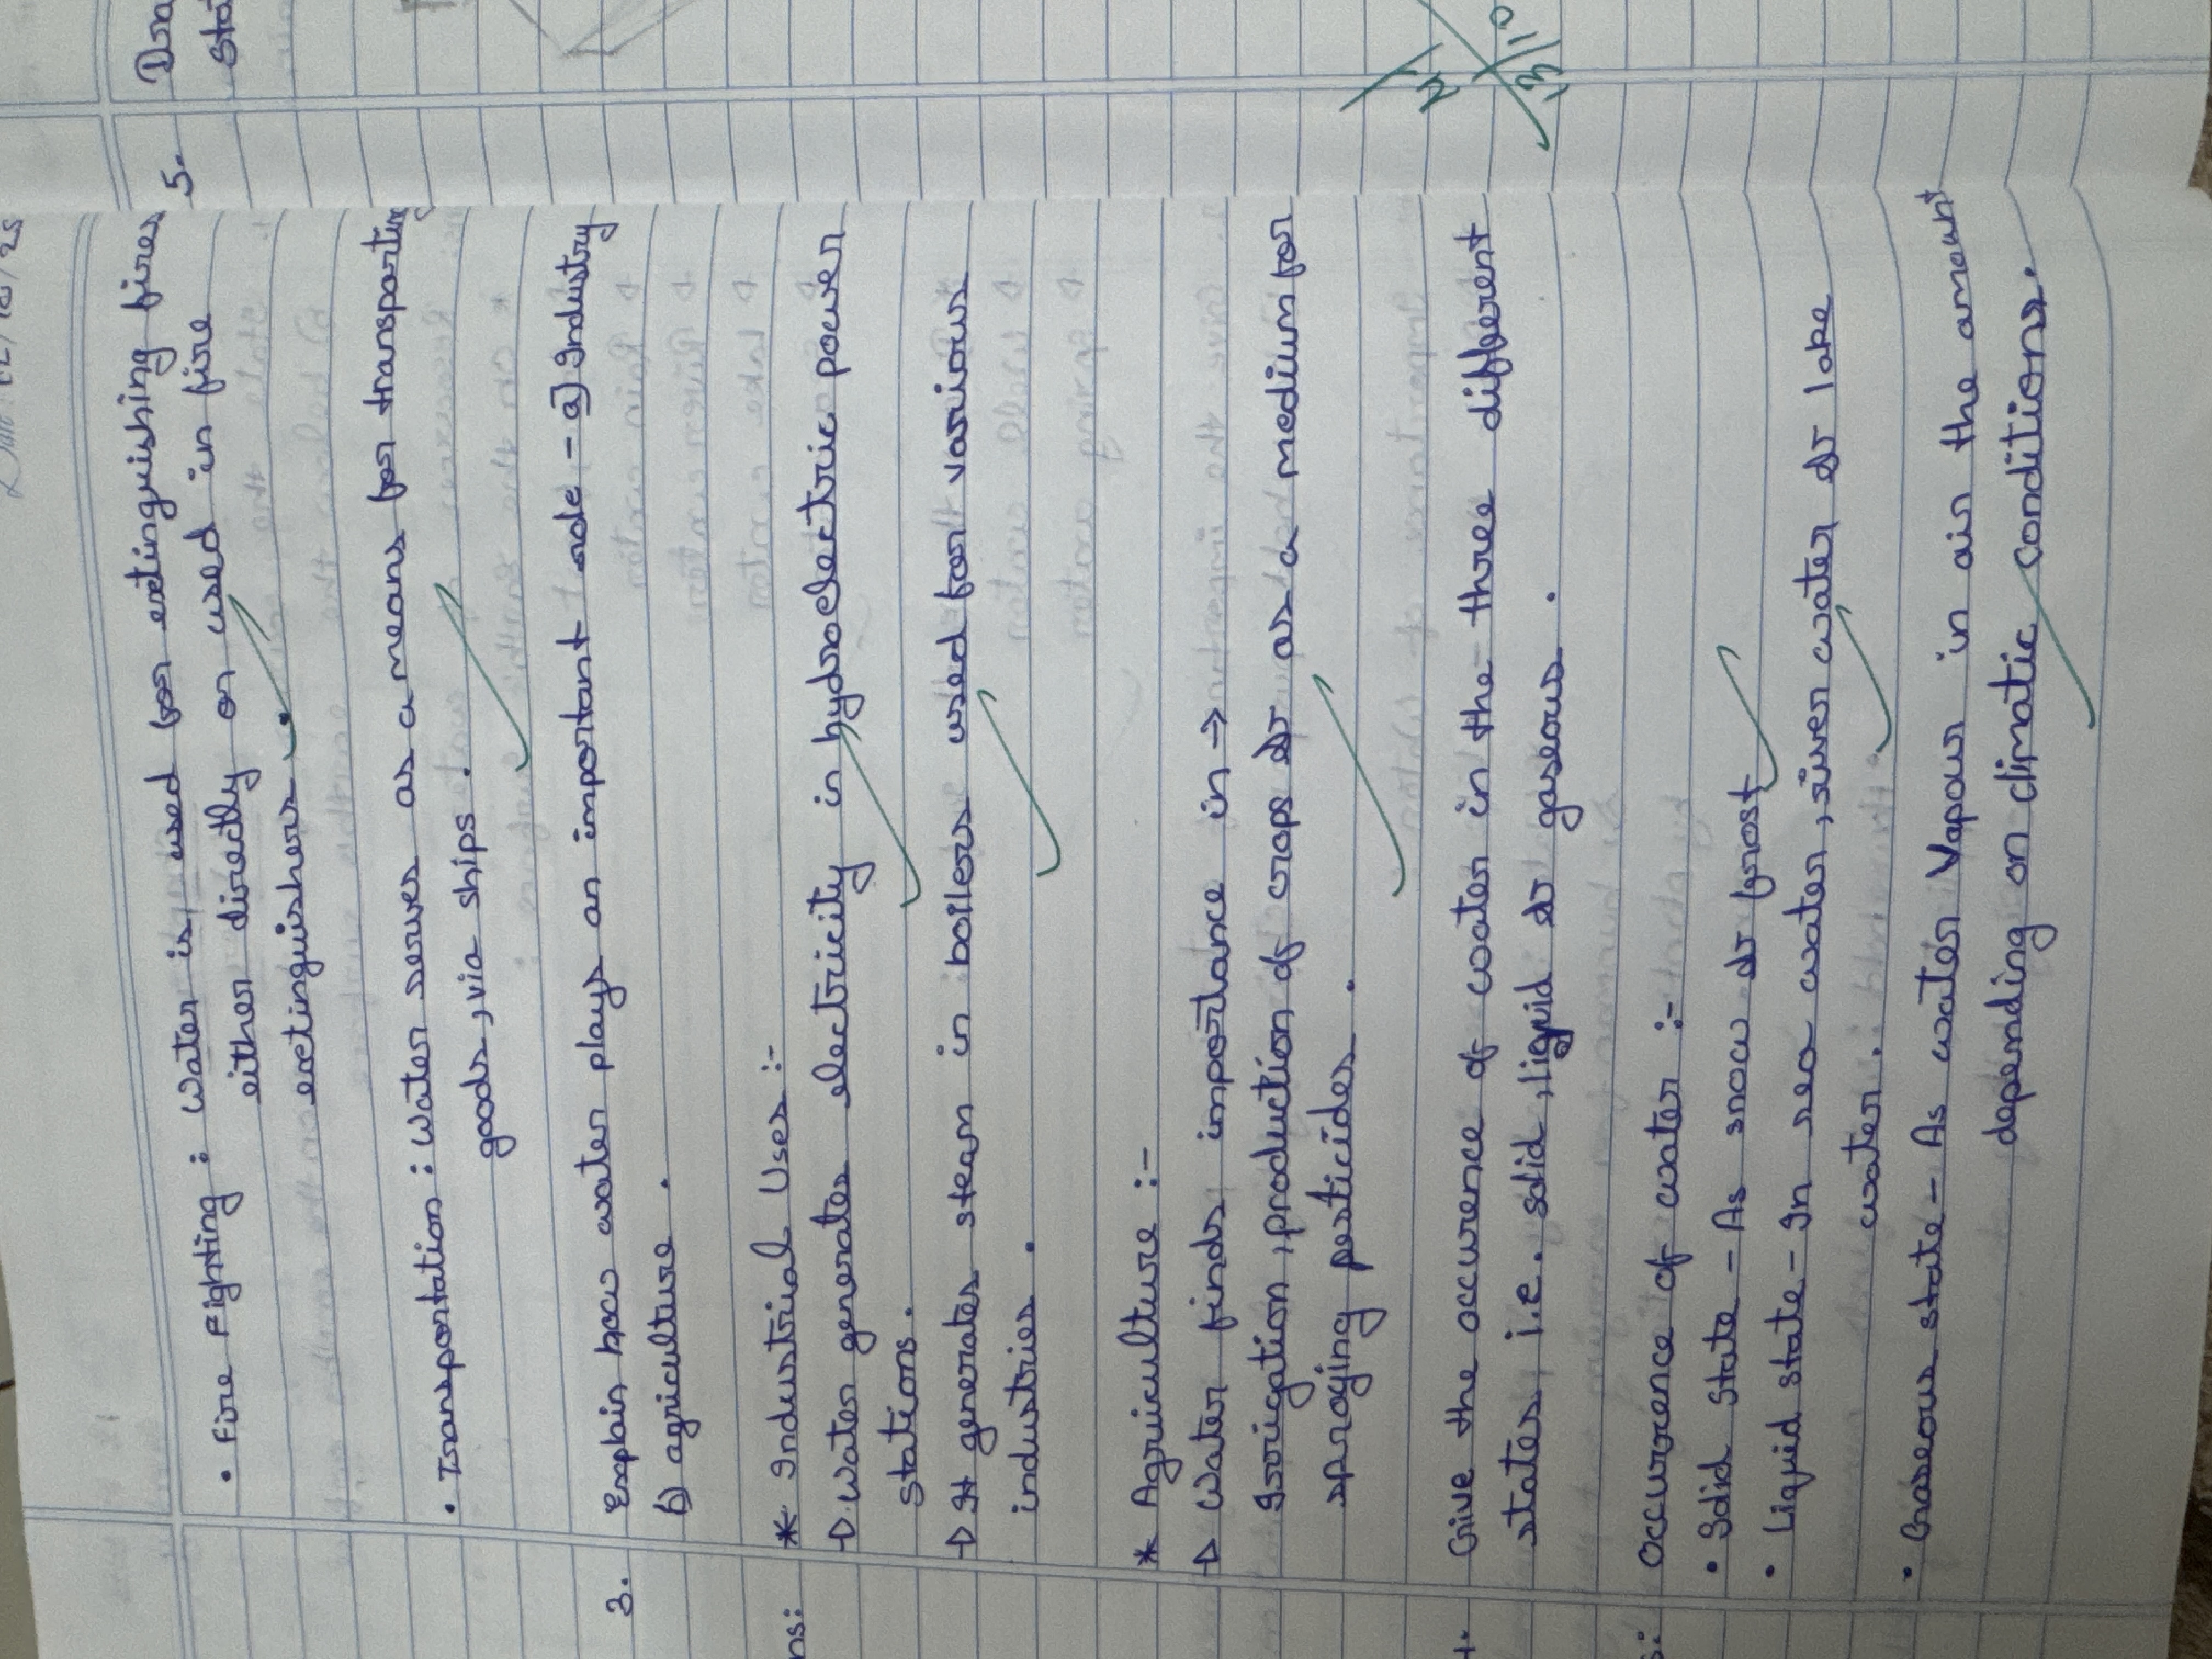 • Fire Fighting : Water is used for extinguishing fires
either directly or used in fire
extinguishers.
• Transportation : Water serves as a means for transporting
goods, via ships.
3. Explain how water plays an important role - a) Industry
b) agriculture.
ns: * Industrial Uses :-
→ Water generates electricity in hydroelectric power
stations.
→ It generates steam in boilers used for various
industries.
* Agriculture :-
→ Water finds importance in →
Irrigation, production of crops or as a medium for
spraying pesticides.
Give the occurence of water in the three different
states i.e. solid, liquid or gaseous.
s: Occurrence of water :-
• Solid state - As snow or frost
• Liquid state - In sea water, river water or lake
water.
• Gaseous state - As water Vapour in air the amount
depending on climatic conditions.
5. Dra
sta